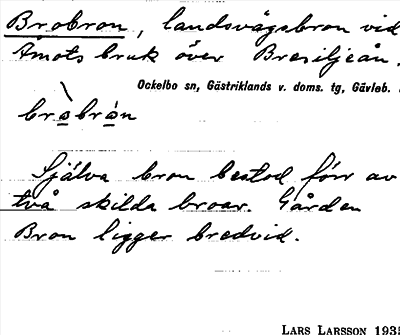 Brobron, landsvägsbron vid
Åmots bruk över Bresiljeån.
Ockelbo sn, Gästriklands v. doms. tg, Gävleb.
brò̲bró̲n
Själva bron bestod förr av
två skilda broar. Gården
Bron ligger bredvid.
LARS LARSSON 193